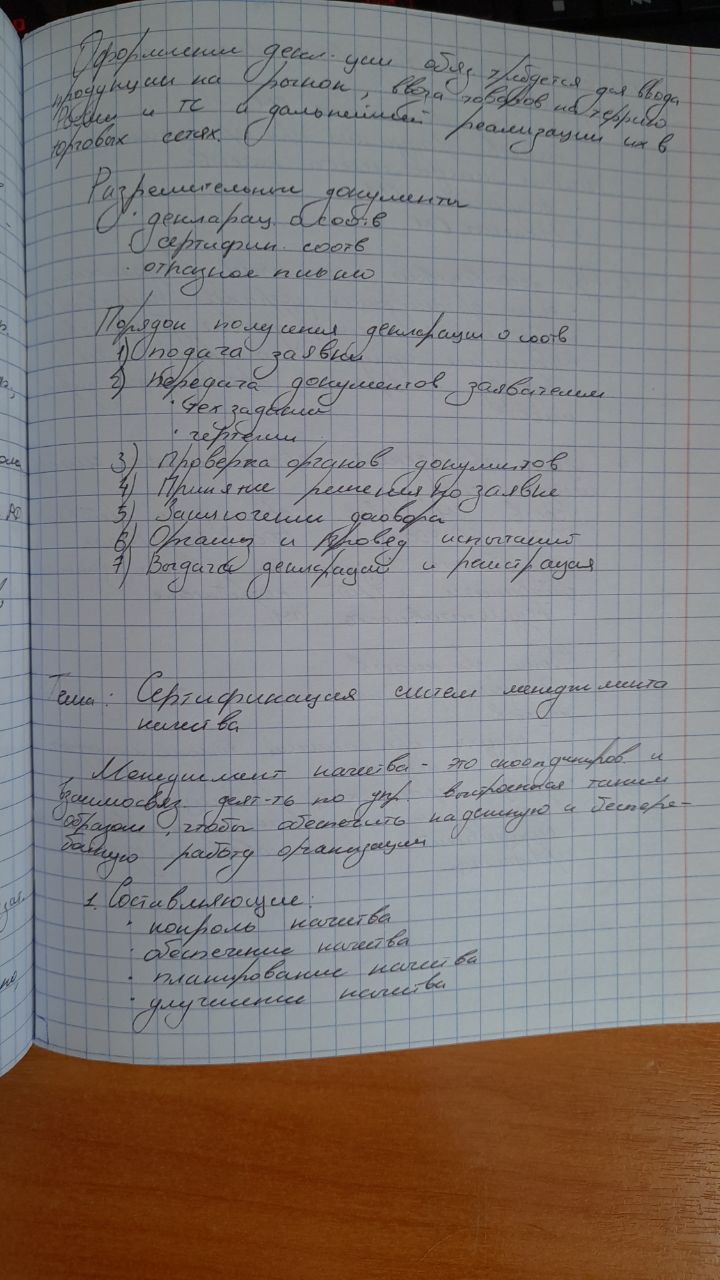 Оформлении декл-ции обяз требуется для ввода
продукции на рынок, ввоза товаров на террито
России и ТС и дальнейшей реализации их в
торговых сетях.
Разрешительные документы
· декларац. о соотв
· сертифик. соотв
· отказное письмо
Порядок получения декларации о соотв
1) подача заявки
2) передача документов заявителем
· тех задания
· чертежи
3) Проверка органов документов
4) Принятие решения по заявке
5) Заключении договора
6) Организ и провед испытаний
7) Выдача декларации и регистрация
Тема: Сертификация систем менеджмента
качества
Менеджмент качества - это скоординиров. и
взаимосвяз. деят-ть по упр. выстроенная таким
образом, чтобы обеспечить надежную и беспере-
бойную работу организации
1. Составляющие:
· контроль качества
· обеспечение качества
· планирование качества
· улучшение качества